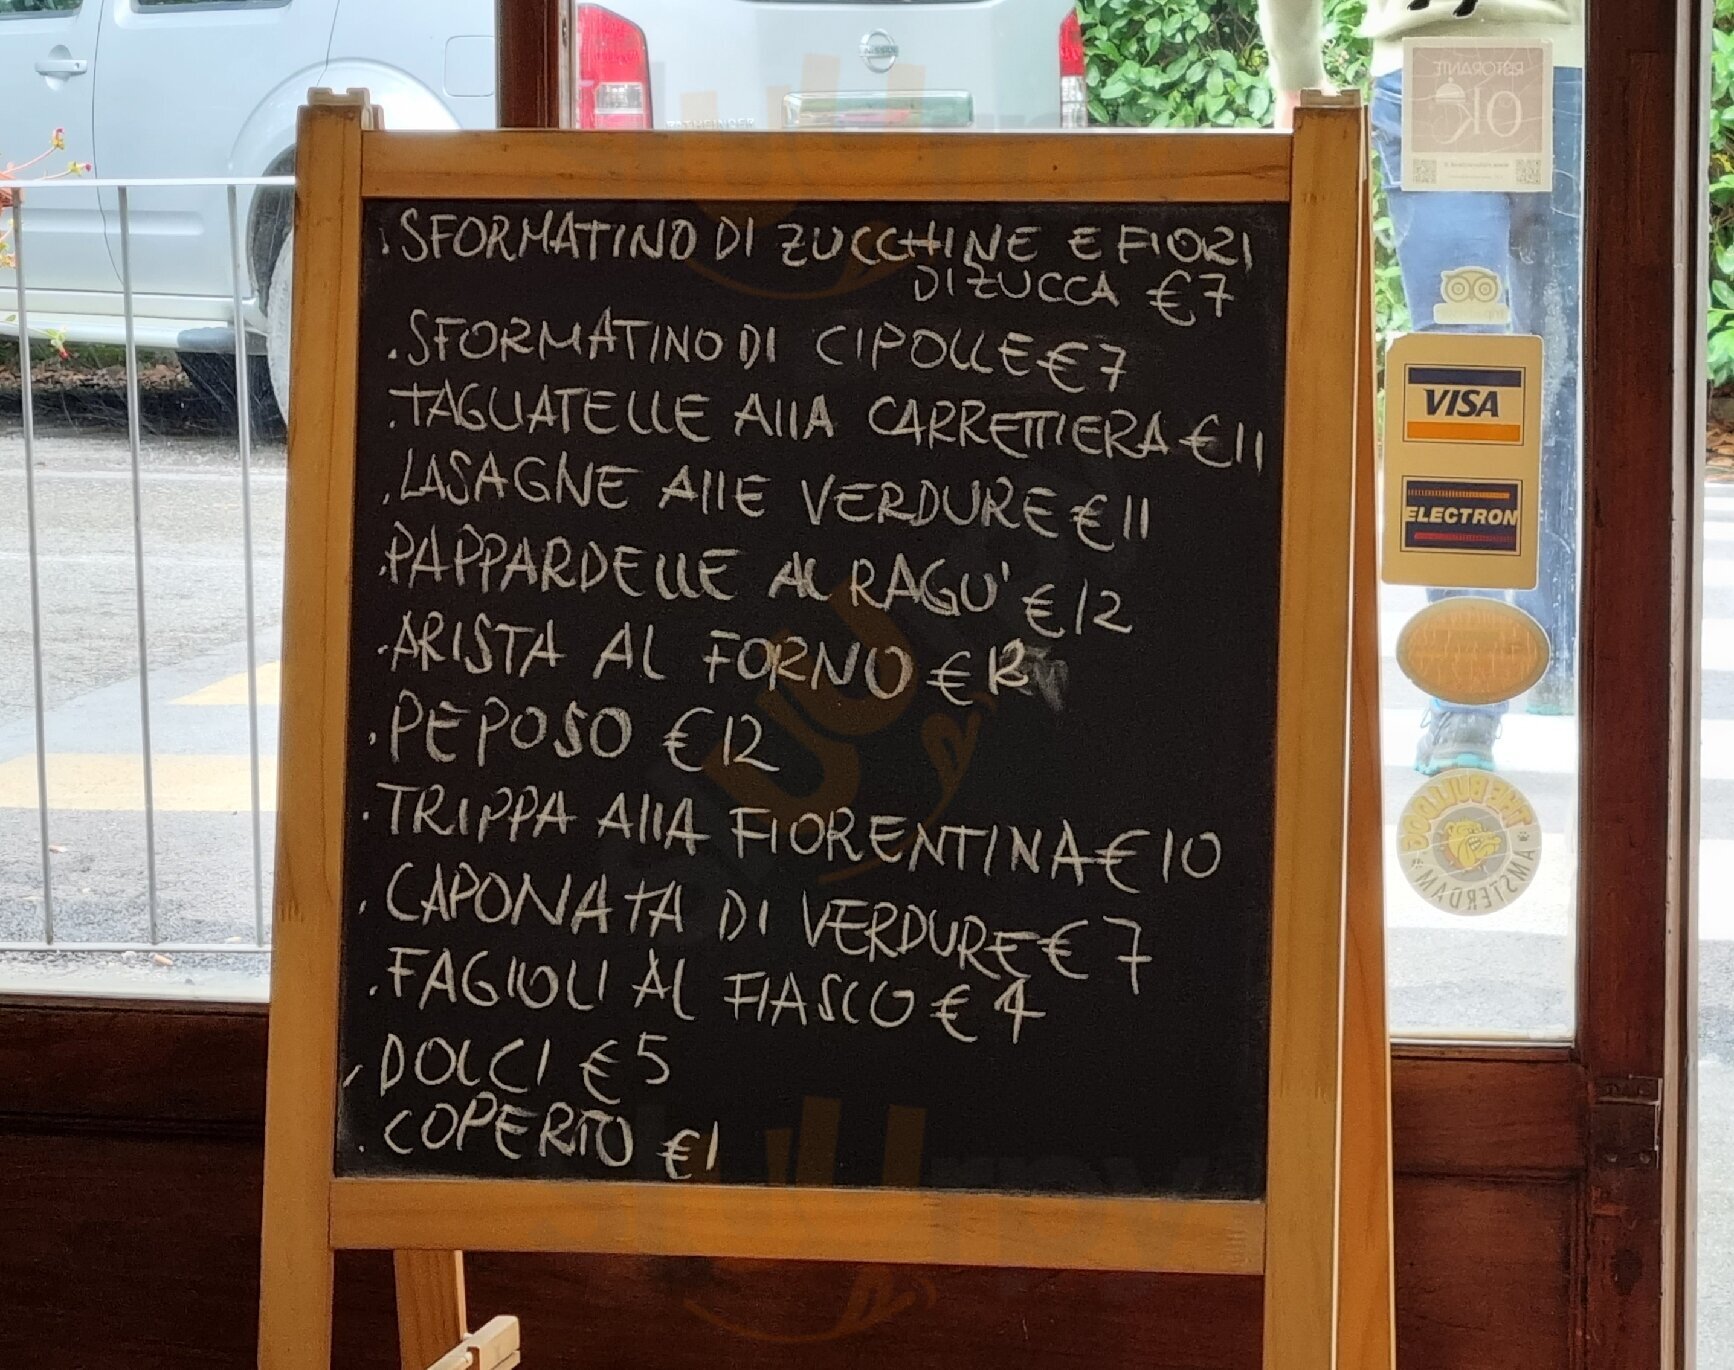 NISSAN
PATHFINDER
RISTORANTE
OK
. SFORMATINO DI ZUCCHINE E FIORI
DI ZUCCA €7
. SFORMATINO DI CIPOLLE €7
. TAGLIATELLE AllA CARRETTIERA €11
. LASAGNE AllE VERDURE €11
. PAPPARDELLE AL RAGU' €12
. ARISTA AL FORNO € 12
. PEPOSO €12
. TRIPPA AllA FIORENTINA €10
. CAPONATA DI VERDURE €7
. FAGIOLI AL FIASCO €4
. DOLCI €5
. COPERTO €1
VISA
ELECTRON
THE BULLDOG
AMSTERDAM